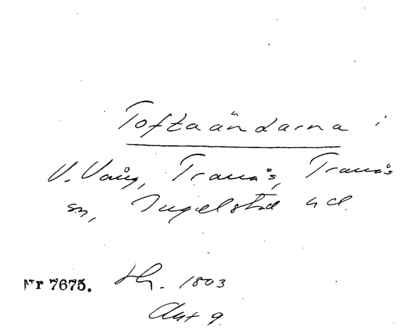 Toftaändarna i
V. Vång, Tranås, Tranås
sn, Ingelstad hd.
Nr 7675. Hr. 1803
Akt 9.